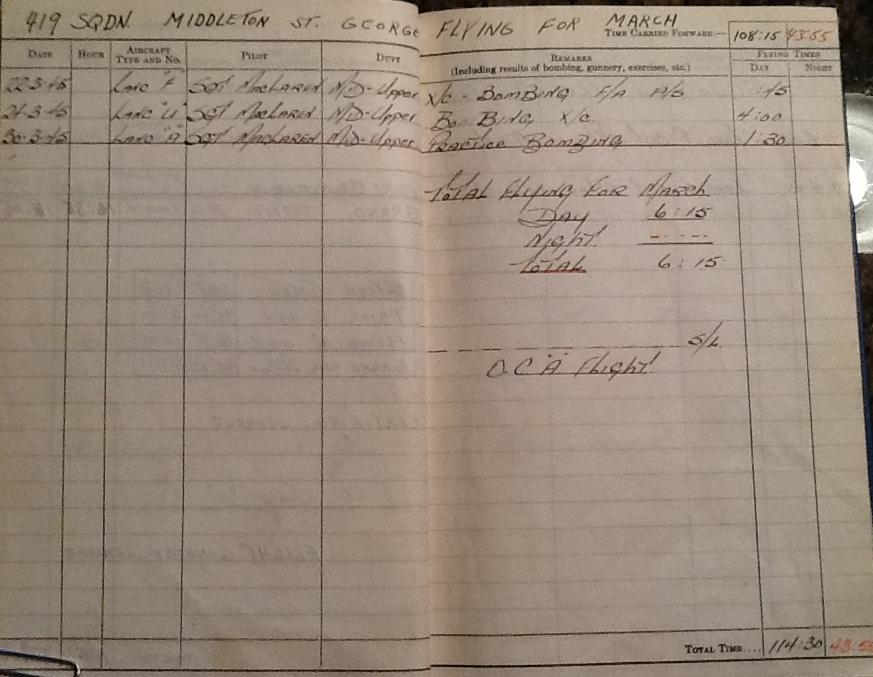 419 SQDN. MIDDLETON ST. GEORGE FLYING FOR MARCH
TIME CARRIED FORWARD:— 108:15 43:55
DATE HOUR AIRCRAFT TYPE AND NO. PILOT DUTY REMARKS (Including results of bombing, gunnery, exercises, etc.) FLYING TIMES DAY NIGHT
22-3-45 LANC "F" SGT MACLAREN MID-UPPER X/C - BOMBING F/A A/S :45
LANC "U" SGT MACLAREN MID-UPPER BOMBING X/C 4:00
30-3-45 LANC "A" SGT MACLAREN MID-UPPER PRACTICE BOMBING 1:30
TOTAL FLYING FOR MARCH
DAY 6:15
NIGHT -----
TOTAL 6:15
S/L
O.C "A" FLIGHT
TOTAL TIME.... 114:30 43:55